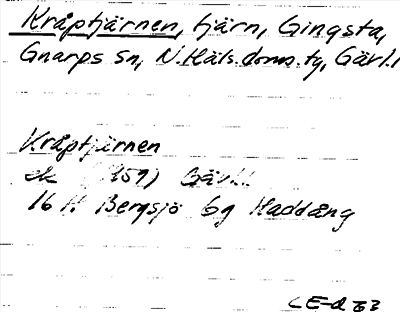 Kråptjärnen, tjärn, Gingsta,
Gnarps sn, N.Häls.doms.tg, Gävl.l
Kråptjärnen
ek (1959) Gävl.l
16 H Bergsjö 6g Haddång
CE-d 63